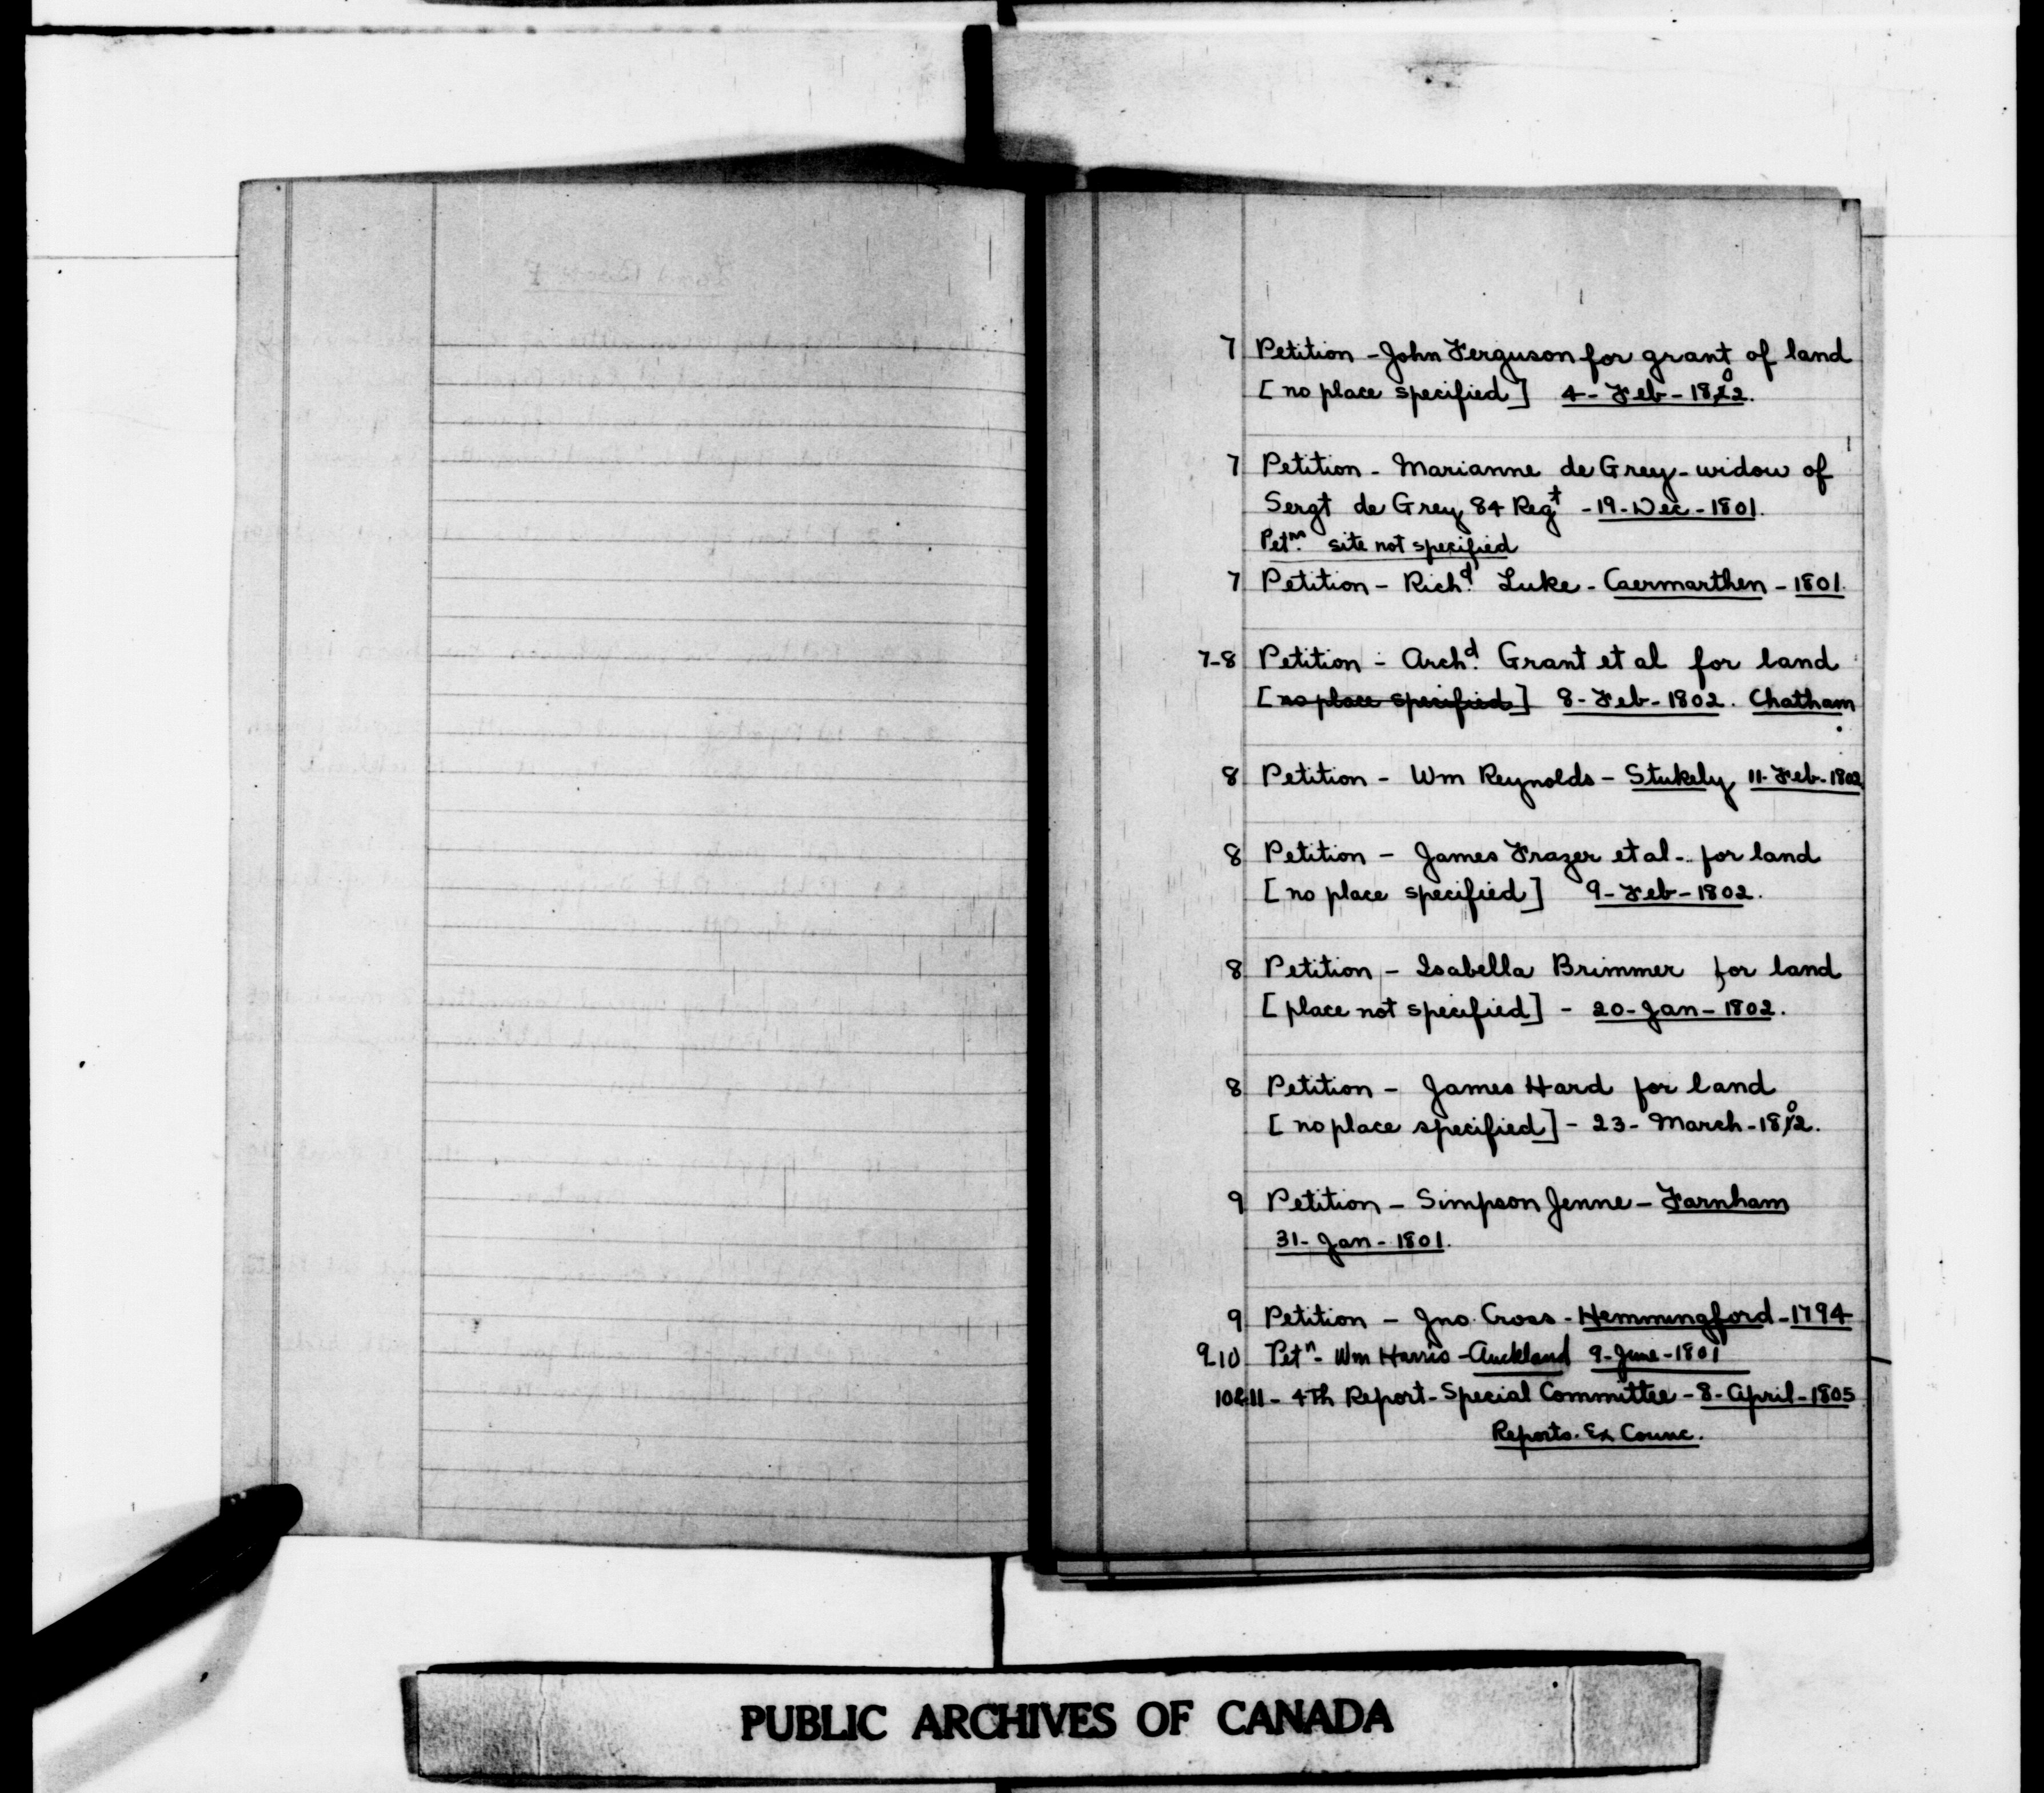 7 Petition - John Ferguson for grant of land
[no place specified] 4-Feb-1802.
7 Petition - Marianne de Grey - widow of
Sergt de Grey 84 Regt - 19-Dec-1801.
Petns. site not specified
7 Petition - Richd. Luke - Caermarthen - 1801.
7-8 Petition - Archd. Grant et al for land
[no place specified] 8-Feb-1802. Chatham
8 Petition - Wm Reynolds - Stukely 11-Feb-1802
8 Petition - James Frazer et al - for land
[no place specified] 9-Feb-1802.
8 Petition - Isabella Brimmer for land
[place not specified] - 20-Jan-1802.
8 Petition - James Hard for land
[no place specified] - 23-March-1802.
9 Petition - Simpson Jenne - Farnham
31-Jan-1801.
9 Petition - Jno. Cross - Hemmingford - 1794
9-10 Petn - Wm Harris - Auckland 9-June-1801
10&11 - 4th Report - Special Committee - 8-April-1805
Reports. Ex Counc.
PUBLIC ARCHIVES OF CANADA